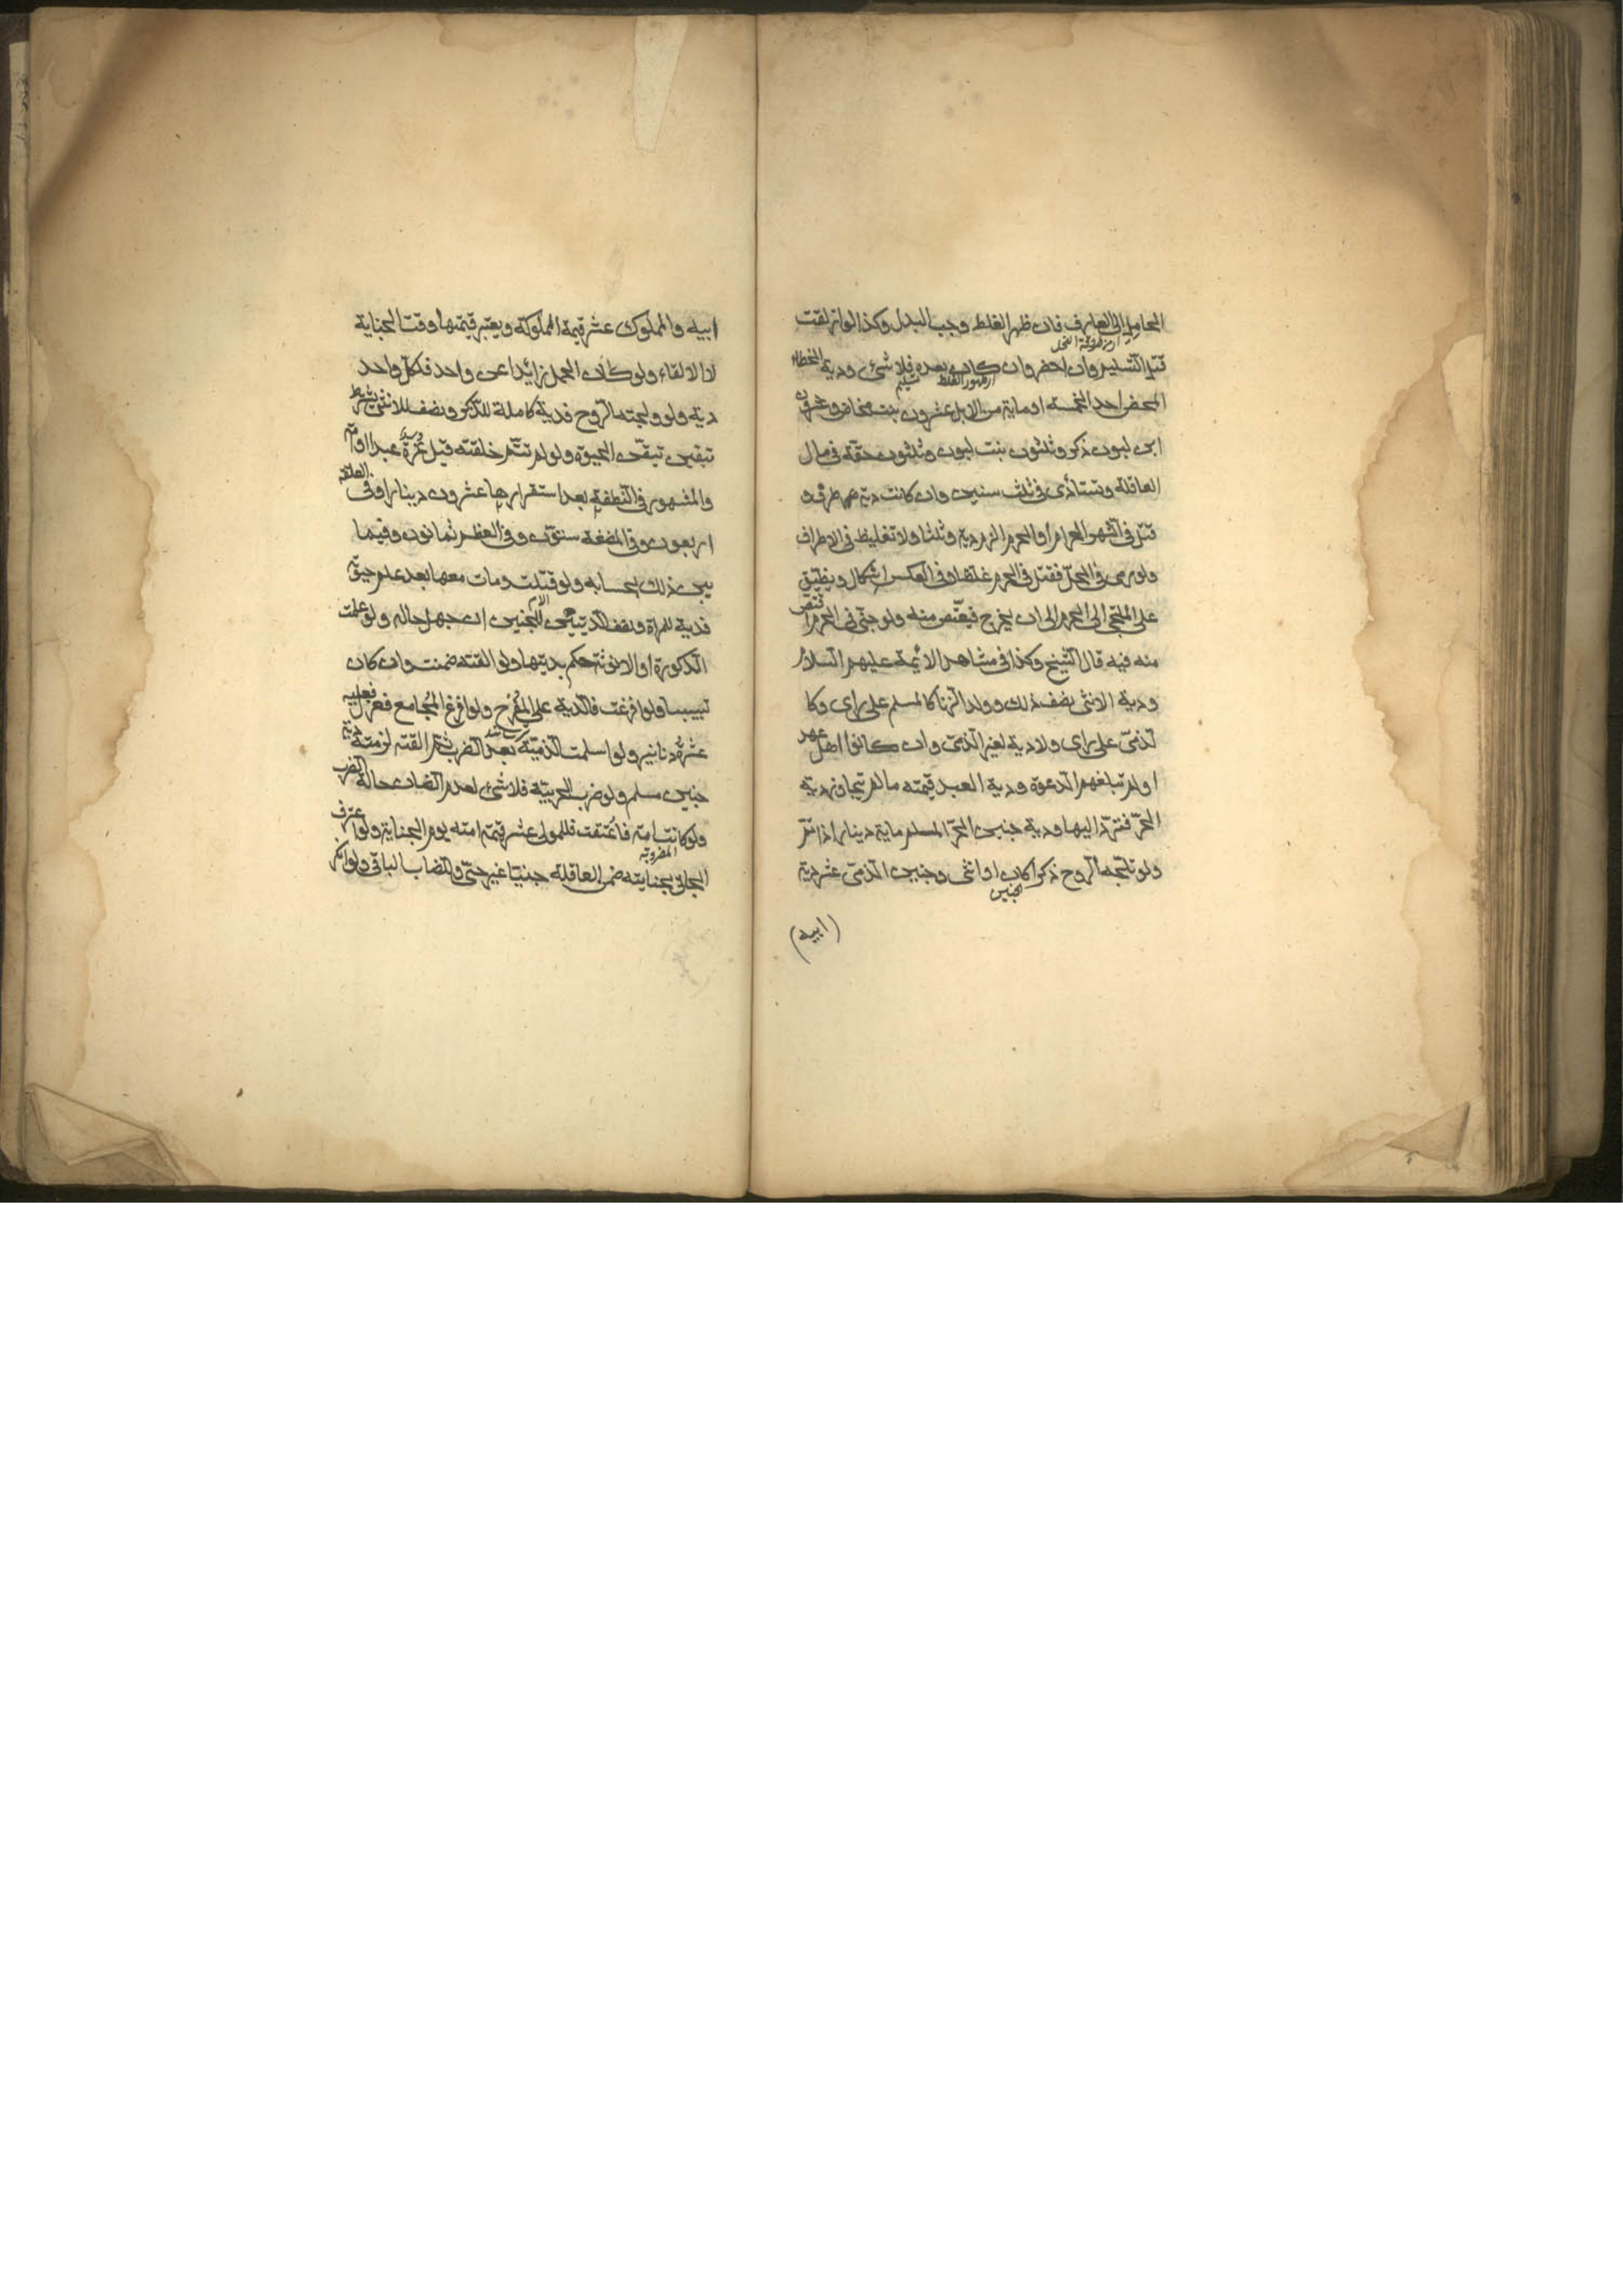 الحامل الى العارف فان ظهر الغلط وجب البدل وكذا لو ازلقت
قبل التسليم وان احضر وان كان بعده فلا شئ ودية الخطاء
ار ظهور الغلط تسليم
المحض احد الخمسة او ماية من الابل عشرون بنت مخاض وعشرون
ابن لبون ذكر وثلثون بنت لبون وثلثون حقة فى مال
العاقلة وتستأدى فى ثلث سنين وان كانت دية طرف ولو
قتل فى الشهر الحرام او الحرم الزم دية وثلثا ولا تغليظ فى الاطراف
ولو رمى فى الحل فقتل فى الحرم غلظ وفى العكس اشكال ويضيق
على الملتجى الى الحرم الى ان يخرج فيقتص منه ولو جنى فى الحرم اقتص
منه فيه قال الشيخ وكذا فى مشاهد الائمة عليهم السلام
ودية الانثى نصف ذلك وولد الزنا كالمسلم على راى وكا
لذمى على راى ولا دية لغير الذمى وان كانوا اهل عهد
او لم تبلغهم الدعوة ودية العبد قيمته ما لم تتجاوز دية
الحر فترد اليها ودية جنين الحر المسلم ماية دينار اذا تم
ولو تلجه الروح ذكرا كان او انثى وجنين الذمى عشر دية
الجنين
(ابيه)
ابيه والمملوك عشر قيمة المملوكة ويعتبر قيمتها وقت الجناية
لا الالقاء ولو كان الحمل زائدا عن واحد فلكل واحد
دية ولو ولجته الروح فدية كاملة للذكر ونصف للانثى بشرط
تيقن الحيوة ولو لم تتم خلقته قيل غرة عبدا او امة
والمشهور فى النطفة بعد استقرارها عشرون دينارا وفى العلقة
اربعون وفى المضغة ستون وفى العظم ثمانون وفيما
بين ذلك بحسابه ولو قتلت ومات معها بعد علم حيوته
فدية للمراة ونصف الديتين للجنين ان جهل حاله ولو علمت
الذكورة او الانوثة حكم بديتها ولو القته ضمنت وان كان
تسبيبا ولو افزعت فالدية على المفزع ولو افزع المجامع فعزل فعليه
عشرة دنانير ولو اسلمت الذمية بعد الضرب ثم القته لزمته دية
جنين مسلم ولو ضرب الحربية فلا شئ لعدم الضمان حالة الضرب
ولو كانت امة فاعتقت فللمولى عشر قيمة امته يوم الجناية ولو اعترف
المضروبة
الجانى بجنايته ضمن العاقلة جنينا غير حى والضارب الباقى ولو انكر